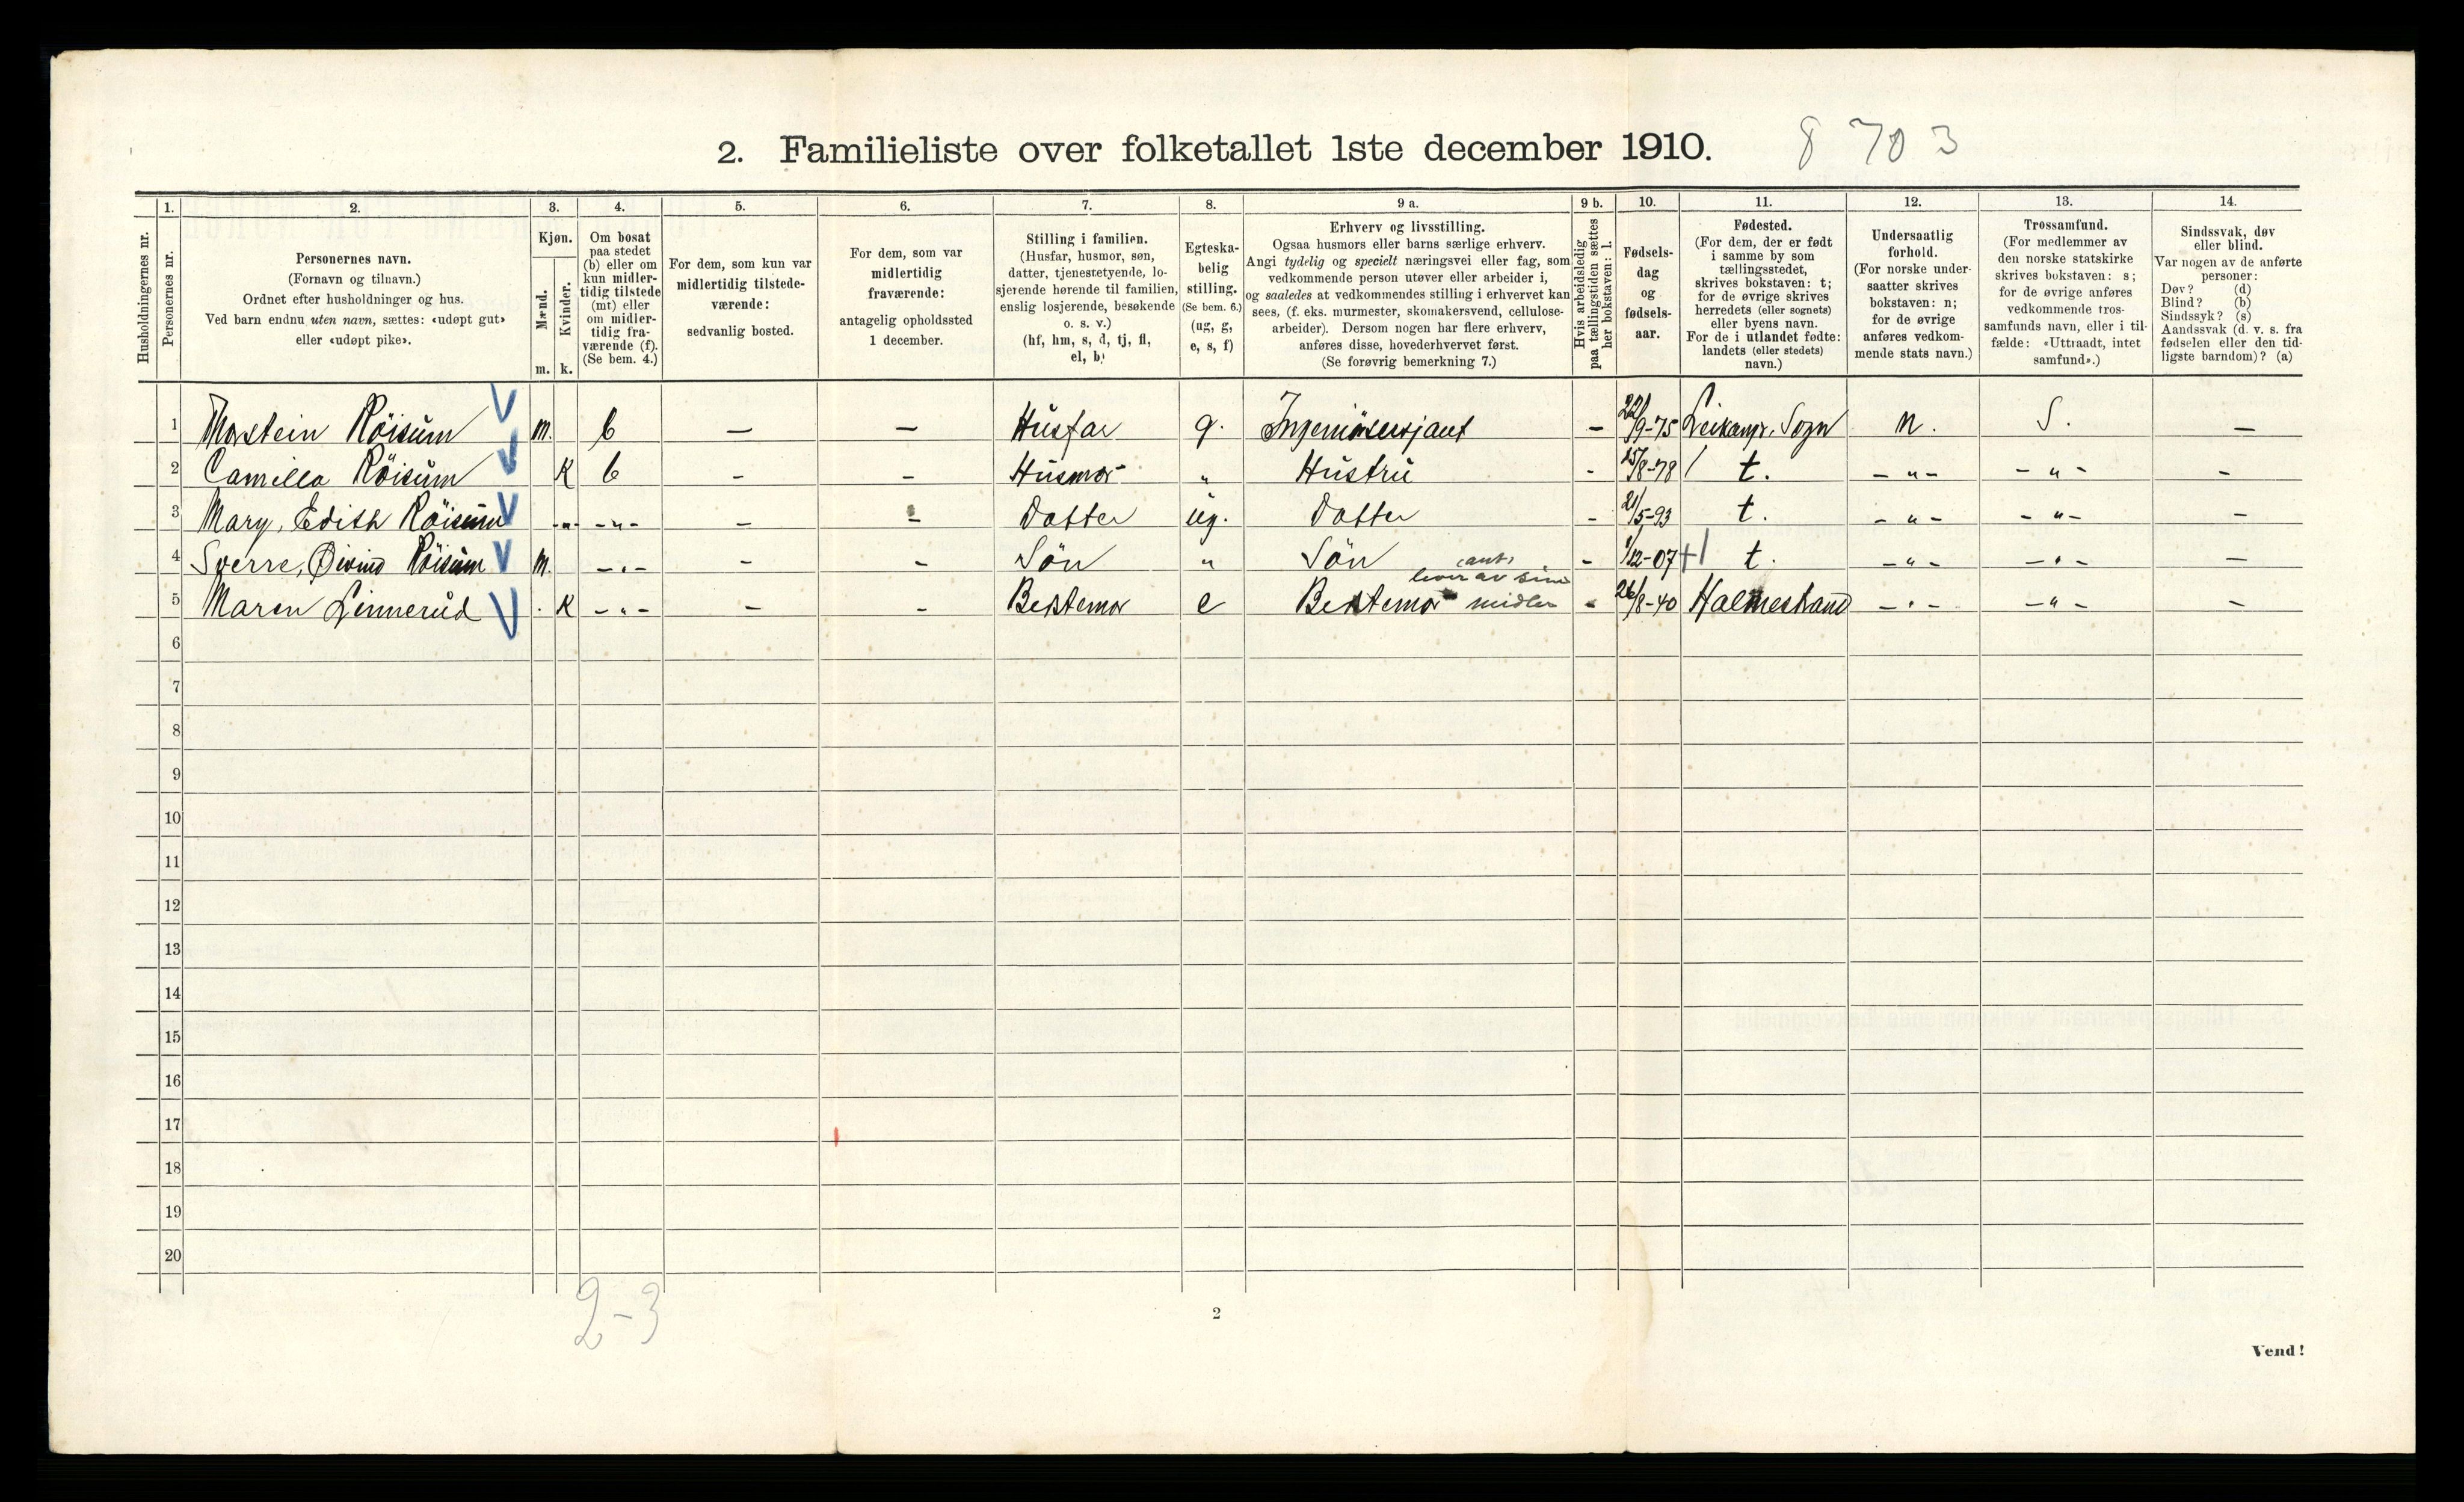 2. Familieliste over folketallet 1ste december 1910. 8 703
Husholdningernes nr.
1. Personernes nr.
2. Personernes navn. (Fornavn og tilnavn.) Ordnet efter husholdninger og hus. Ved barn endnu uten navn, sættes: «udøpt gut» eller «udøpt pike».
3. Kjøn. Mænd. m. Kvinder. k.
4. Om bosat paa stedet (b) eller om kun midlertidig tilstede (mt) eller om midlertidig fraværende (f). (Se bem. 4.)
5. For dem, som kun var midlertidig tilstedeværende: sedvanlig bosted.
6. For dem, som var midlertidig fraværende: antagelig opholdssted 1 december.
7. Stilling i familien. (Husfar, husmor, søn, datter, tjenestetyende, losjerende hørende til familien, enslig losjerende, besøkende o. s. v.) (hf, hm, s, d, tj, fl, el, b)
8. Egteskabelig stilling. (Se bem. 6.) (ug, g, e, s, f)
9 a. Erhverv og livsstilling. Ogsaa husmors eller barns særlige erhverv. Angi tydelig og specielt næringsvei eller fag, som vedkommende person utøver eller arbeider i, og saaledes at vedkommendes stilling i erhvervet kan sees, (f. eks. murmester, skomakersvend, cellulosearbeider). Dersom nogen har flere erhverv, anføres disse, hovederhvervet først. (Se forøvrig bemerkning 7.)
9 b. Hvis arbeidsledig paa tællingstiden sættes her bokstaven: l.
10. Fødselsdag og fødselsaar.
11. Fødested. (For dem, der er født i samme by som tællingsstedet, skrives bokstaven: t; for de øvrige skrives herredets (eller sognets) eller byens navn. For de i utlandet fødte: landets (eller stedets) navn.)
12. Undersaatlig forhold. (For norske undersaatter skrives bokstaven: n; for de øvrige anføres vedkommende stats navn.)
13. Trossamfund. (For medlemmer av den norske statskirke skrives bokstaven: s; for de øvrige anføres vedkommende trossamfunds navn, eller i tilfælde: «Uttraadt, intet samfund».)
14. Sindssvak, døv eller blind. Var nogen av de anførte personer: Døv? (d) Blind? (b) Sindssyk? (s) Aandssvak (d. v. s. fra fødselen eller den tidligste barndom)? (a)
1 Thorstein Röisum m. b — — Husfar g. Ingeniörsersjant - 22/9-75 Leikanger, Sogn n. S. —
2 Camilla Röisum K b - - Husmor " Hustru - 15/8-78 t. -"- -"- -
3 Mary, Edith Röisum -"- -"- - - Datter ug. Datter - 21/5-93 t. -"- -"- -
4 Sverre, Øivind Röisum m. -"- - - Sön " Sön - 1/12-07 t. -"- -"- —
5 Maren Linnerud K -"- - - Bestemor e Bestemor lever av sine midler - 26/8-40 Holmestrand -"- -"- -
6
7
8
9
10
11
12
13
14
15
16
17
18
19
20
2-3
2
Vend!